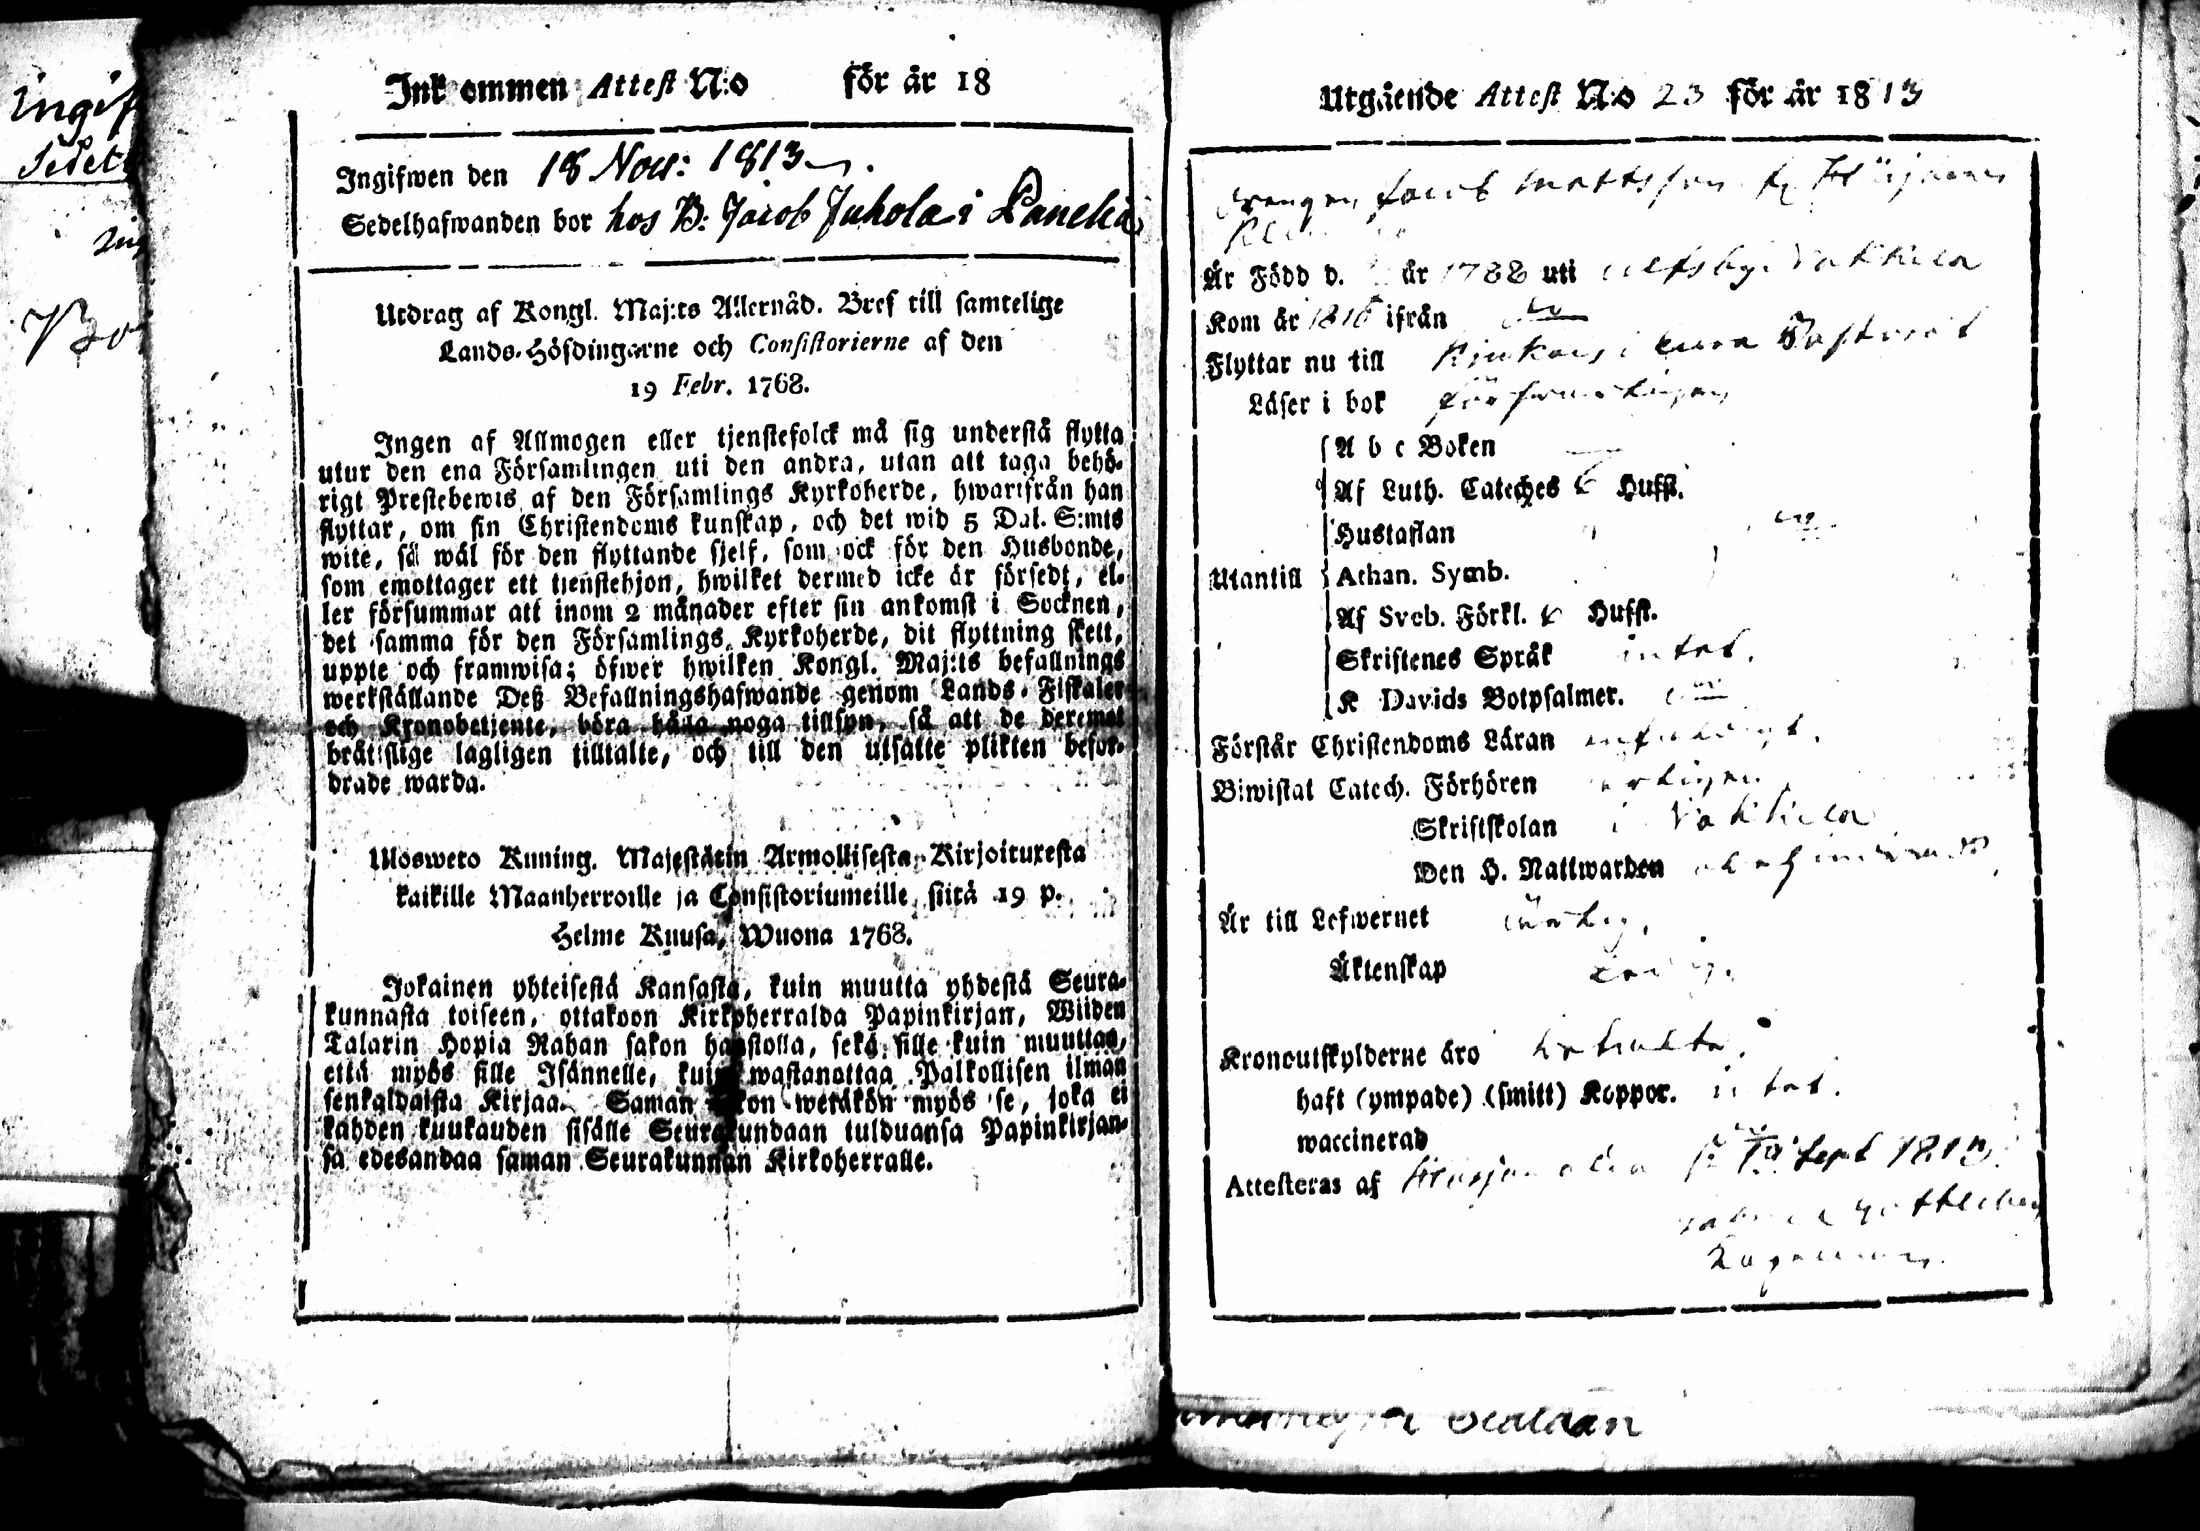 Inkommen Attest N:o för år 18
Ingifwen den 18 Nov: 1813
Sedelhafwanden bor hos B: Jacob Juhola i
Utdrag af Kongl. Maj:ts Allernåd. Bref till samtelige
Lands-Höfdingarne och Consistorierne af den
19 Febr. 1768.
Ingen af Allmogen eller tjenstefolck må sig understå flytta
utur den ena Församlingen uti den andra, utan att taga behö-
rigt Prestebewis af den Församlings Kyrkoherde, hwarifrån han
flyttar, om sin Christendoms kunskap, och det wid 5 Dal. S:mts
wite, så wäl för den flyttande sjelf, som ock för den Husbonde,
som emottager ett tienstehjon, hwilket dermed icke är försedt, el-
ler försummar att inom 2 månader efter sin ankomst i Socknen,
det samma för den Församlings Kyrkoherde, dit flyttning skett,
uppte och framwisa; öfwer hwilken Kongl. Maj:ts befallnings
werkställande Deß Befallningshafwande genom Lands-Fiskaler
och Kronobetjente, böra hålla noga tillsyn, så att de deremot
bråtslige lagligen tilltalte, och till den utsatte plikten befor-
drade warda.
Uloswero Kuning. Majestätin Armollisesta Kirjoituxesta
kaikille Maanherroille ja Consistoriumeille, siitä 19 p.
Helme Kuusa, Wuona 1768.
Jokainen yhteisestä Kansasta, kuin muutta yhdestä Seura-
kunnasta toiseen, ottakoon Kirkoherralda Papinkirjan, Wiiden
Talarin Hopia Rahan sakon haastolla, sekä sille kuin muuttaa,
että myös sille Isännelle, kuin wastanottaa Palkollisen ilman
senkaldaista Kirjaa. Saman sakon wetäkön myös se, joka ei
kahden kuukauden sisälle Seurakundaan tulduansa Papinkirjan-
sa edesandaa saman Seurakunnan Kirkoherralle.
Utgående Attest N:o 23 för år 1813
Drengen Jacob Mattsson
Är Född d. år 1788 uti
Kom år ifrån
Flyttar nu till i Eura Pastorat
Läser i bok försvarligen
A b c Boken
Af Luth. Cateches 6 Hufst.
Hustaflan
Utantill Athan. Symb.
Af Sveb. Förkl. 6 Hufst.
Skriftenes Språk intet.
K Davids Botpsalmer.
Förstår Christendoms Läran
Biwistat Catech. Förhören
Skriftskolan i
Den H. Nattwarden
Är till Lefwernet ärlig.
Äktenskap ledig.
Kronoutskylderne äro betalta.
haft (ympade) (smitt) Koppor. intet.
waccinerad
Attesteras af Sept 1813